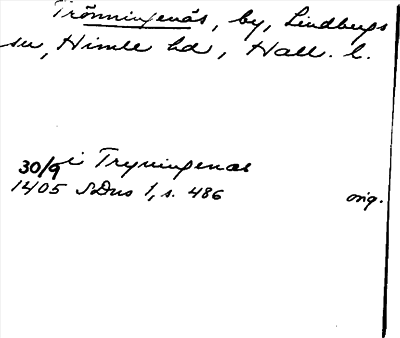 Trönningenäs, by, Lindbergs
sn, Himle hd, Hall. l.
30/9 i Tryningenæs
1405 SDns 1, s. 486 orig.